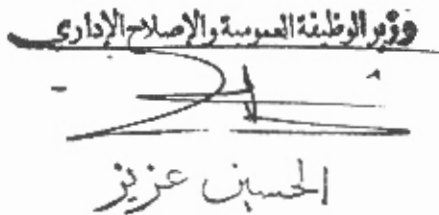 وزير الوظيفة العمومية والإصلاح الإداري
الحسين عزيز